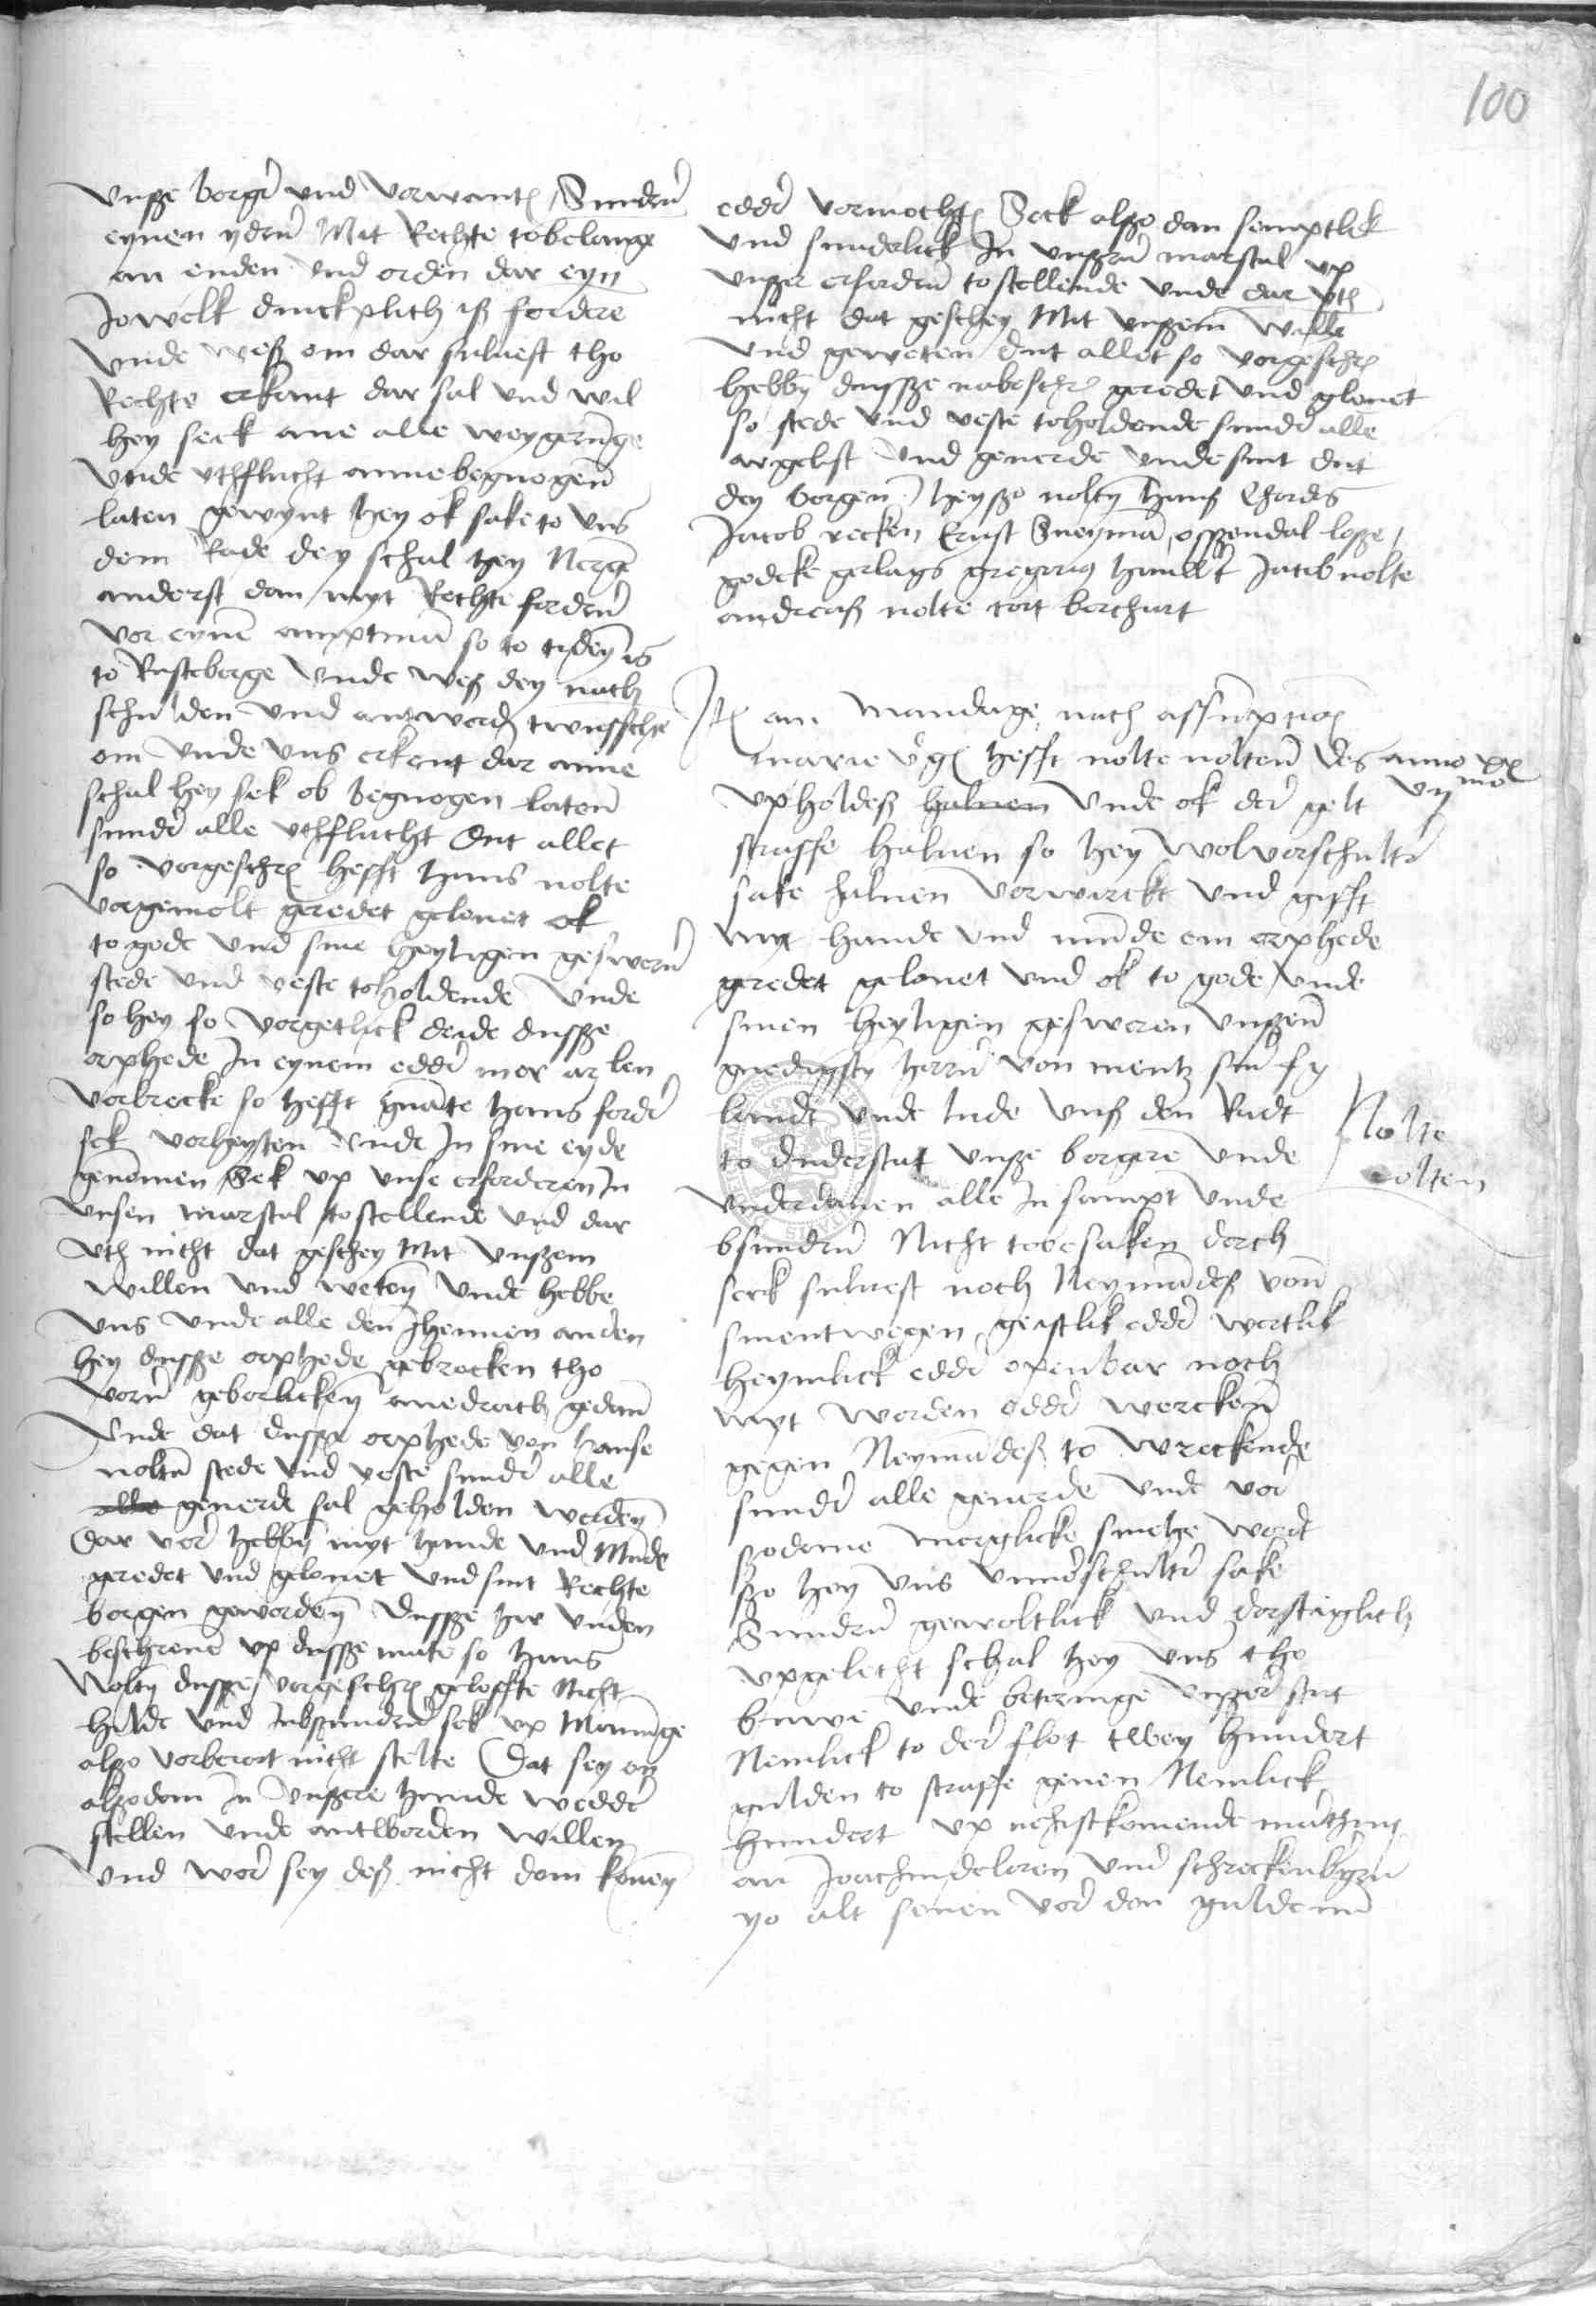 100
vnsze borger vnd vorwanten Sundern
eynen ydern Mit Rechte tobelange
an enden vnd orden dar eyn
Jowelk dinckplich isz fordere
vnde wesz om dar suluest tho
Rechte erkant dar sal vnd wil
hey seck ane alle weygeringe
vnde vthflucht anne begnogen
laten gewynt hey ok sake to vns
dem Rade dey schal hey Nergen
anderst dan myt Rechte fordern
vor eynem amptman so to tyden is
to Rusteberge vnde wesz dey nach
schulden vnd antworden twusschen
om vnde vns erkent dar anne
schal hey sek ok begnogen laten
sunder alle vthflucht Dut allet
so vorgeschr hefft Hans nolte
vorgemolt geredet gelouet ok
to gode vnd sine heyligen geswern
stede vnd veste toholdende vnde
so hey so vorgetlick deide dussze
orphede In eynem edder mer artlen
vorbrecke so hefft gnante Hans forder
sek vorheyten vnde In sine eyde
genomen Sek vp vnse erforderen In
vnsen marstal to stellende vnd dar
vth nicht dat geschey Mit vnszem
willen vnd weten vnde hebbe
vns vnde alle den Jhennen an den
hey dussze orphede gebrocken tho
vorn geborlicken anedrach gedan
vnde dat dussze orphede von Hanse
nolten stede vnd veste sunder alle
alle geuerde sal geholden werden
Dar vor hebben myt hande vnd Munde
geredet vnd gelouet vnd sint Rechte
borgen geworden Dussze hir vnden
beschreuen vp dussze mate so Hans
Nolten dussze vorgeschr geloffte Nicht
hilde vnd Inbszundern sek vp Maninge
alszo vorberort nicht stelte Dat sey on
alszdann In vnszere hande wedder
stellen vnde antworden willen
vnd wor sey desz nicht don konen
edder vormochten Seck alszo dan semptlick
vnd sunderlick In vnszern marstal vp
vnser erfordern to stellende vnde dar vth
nicht dat geschey Mit vnszem willen
vnd geweten Dut allet so vorgeschr
hebben dussze nabeschr geredet vnd glouet
so stede vnd veste toholdende sunder alle
argelist vnd geuerde vnde sint dut
dey borgen Heysze nolten Hans Chordes
Jacob recken Ernst Sneyman oszendal losze
godeke gerlags gregorius Jacob nolte
andreas nolte cort borchart
Jtem am Mandage nach assumptionis
marie vgis hefft nolte nolten des anno xx
vpholdesz haluen vnde ok der gelt
straffe haluen so hey wolvorschulter
sake haluen vorwirckt vnd gifft
myt hande vnd munde ein orphede
geredet gelouet vnd ok to gode vnde
sinen heyligen gesweren vnszern
gnedigsten hern von mentz
lande vnde lude vnsz den Radt
to duderstat vnsze borgere vnde
vnderdanen alle In sampt vnde
bsundern Nicht tobesaken dorch
seck suluest noch Neymandesz von
sinentwegen geistlik edder wertlik
heymlick edder openbar noch
myt worden edder wercken
gegen Neymandesz to wreckende
sunder alle geuerde vnde vor
szodane merglicke smehe wort
szo hey vns vnuerschulter sake
Sundern gewoltlick vnd dorstiglich
vpgelecht schal hey vns tho
buwe vnde beteringe vnszer stat
Nemlick to der flot twey hundert
gulden to straffe geuen Nemlick
hundert vp nehistkomende martini
an Joachimdeloren vnd schreckenbergern
yo alt seuen vor den gulden
Nolte
nolten